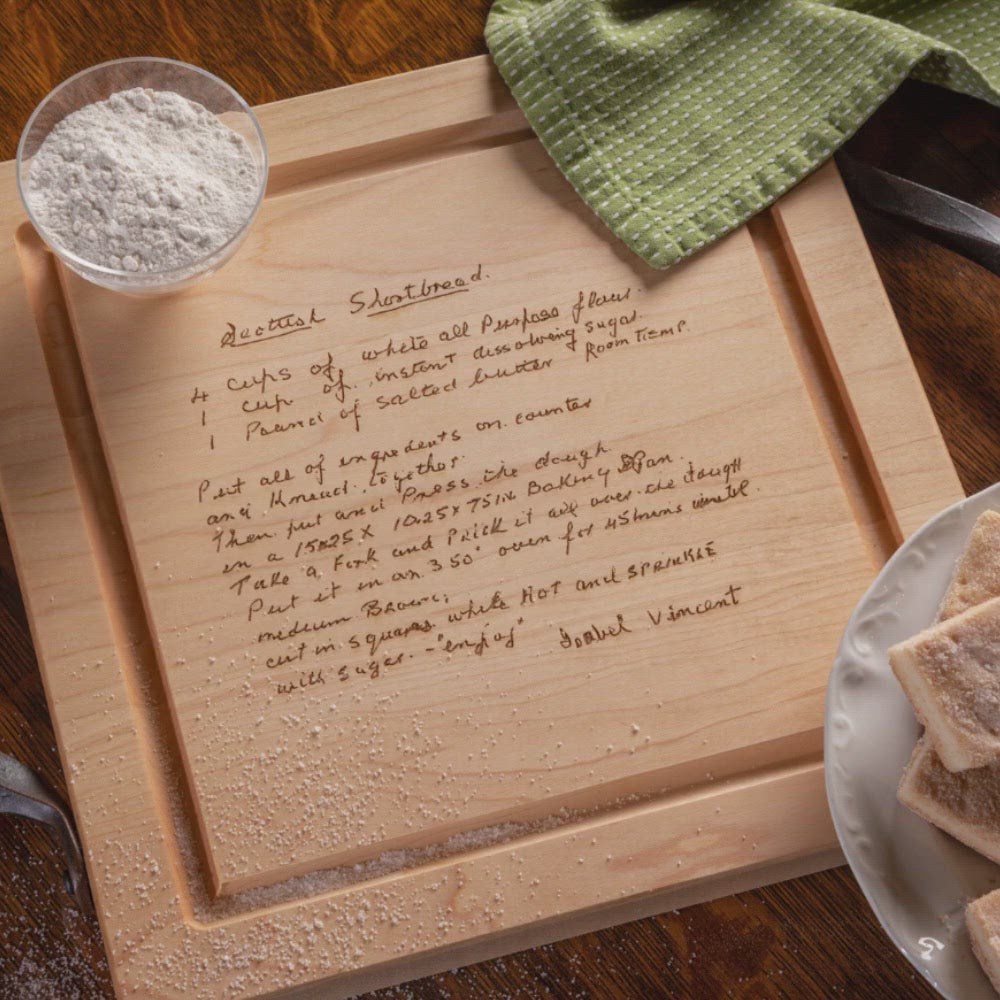 Scottish Shortbread.
4 cups of white all Purpose flour.
1 cup of instant dissolving sugar.
1 Pound of salted butter Room Temp.
Put all of ingredients on counter
and Knead together.
Then put and Press the dough
in a 15x25 x 10x25 x 75 in Baking Pan.
Take a Fork and Prick it all over the dough
Put it in an 350° oven for 45 mins until
medium Brown.
cut in squares while HOT and SPRINKLE
with sugar. - "enjoy" Isabel Vincent